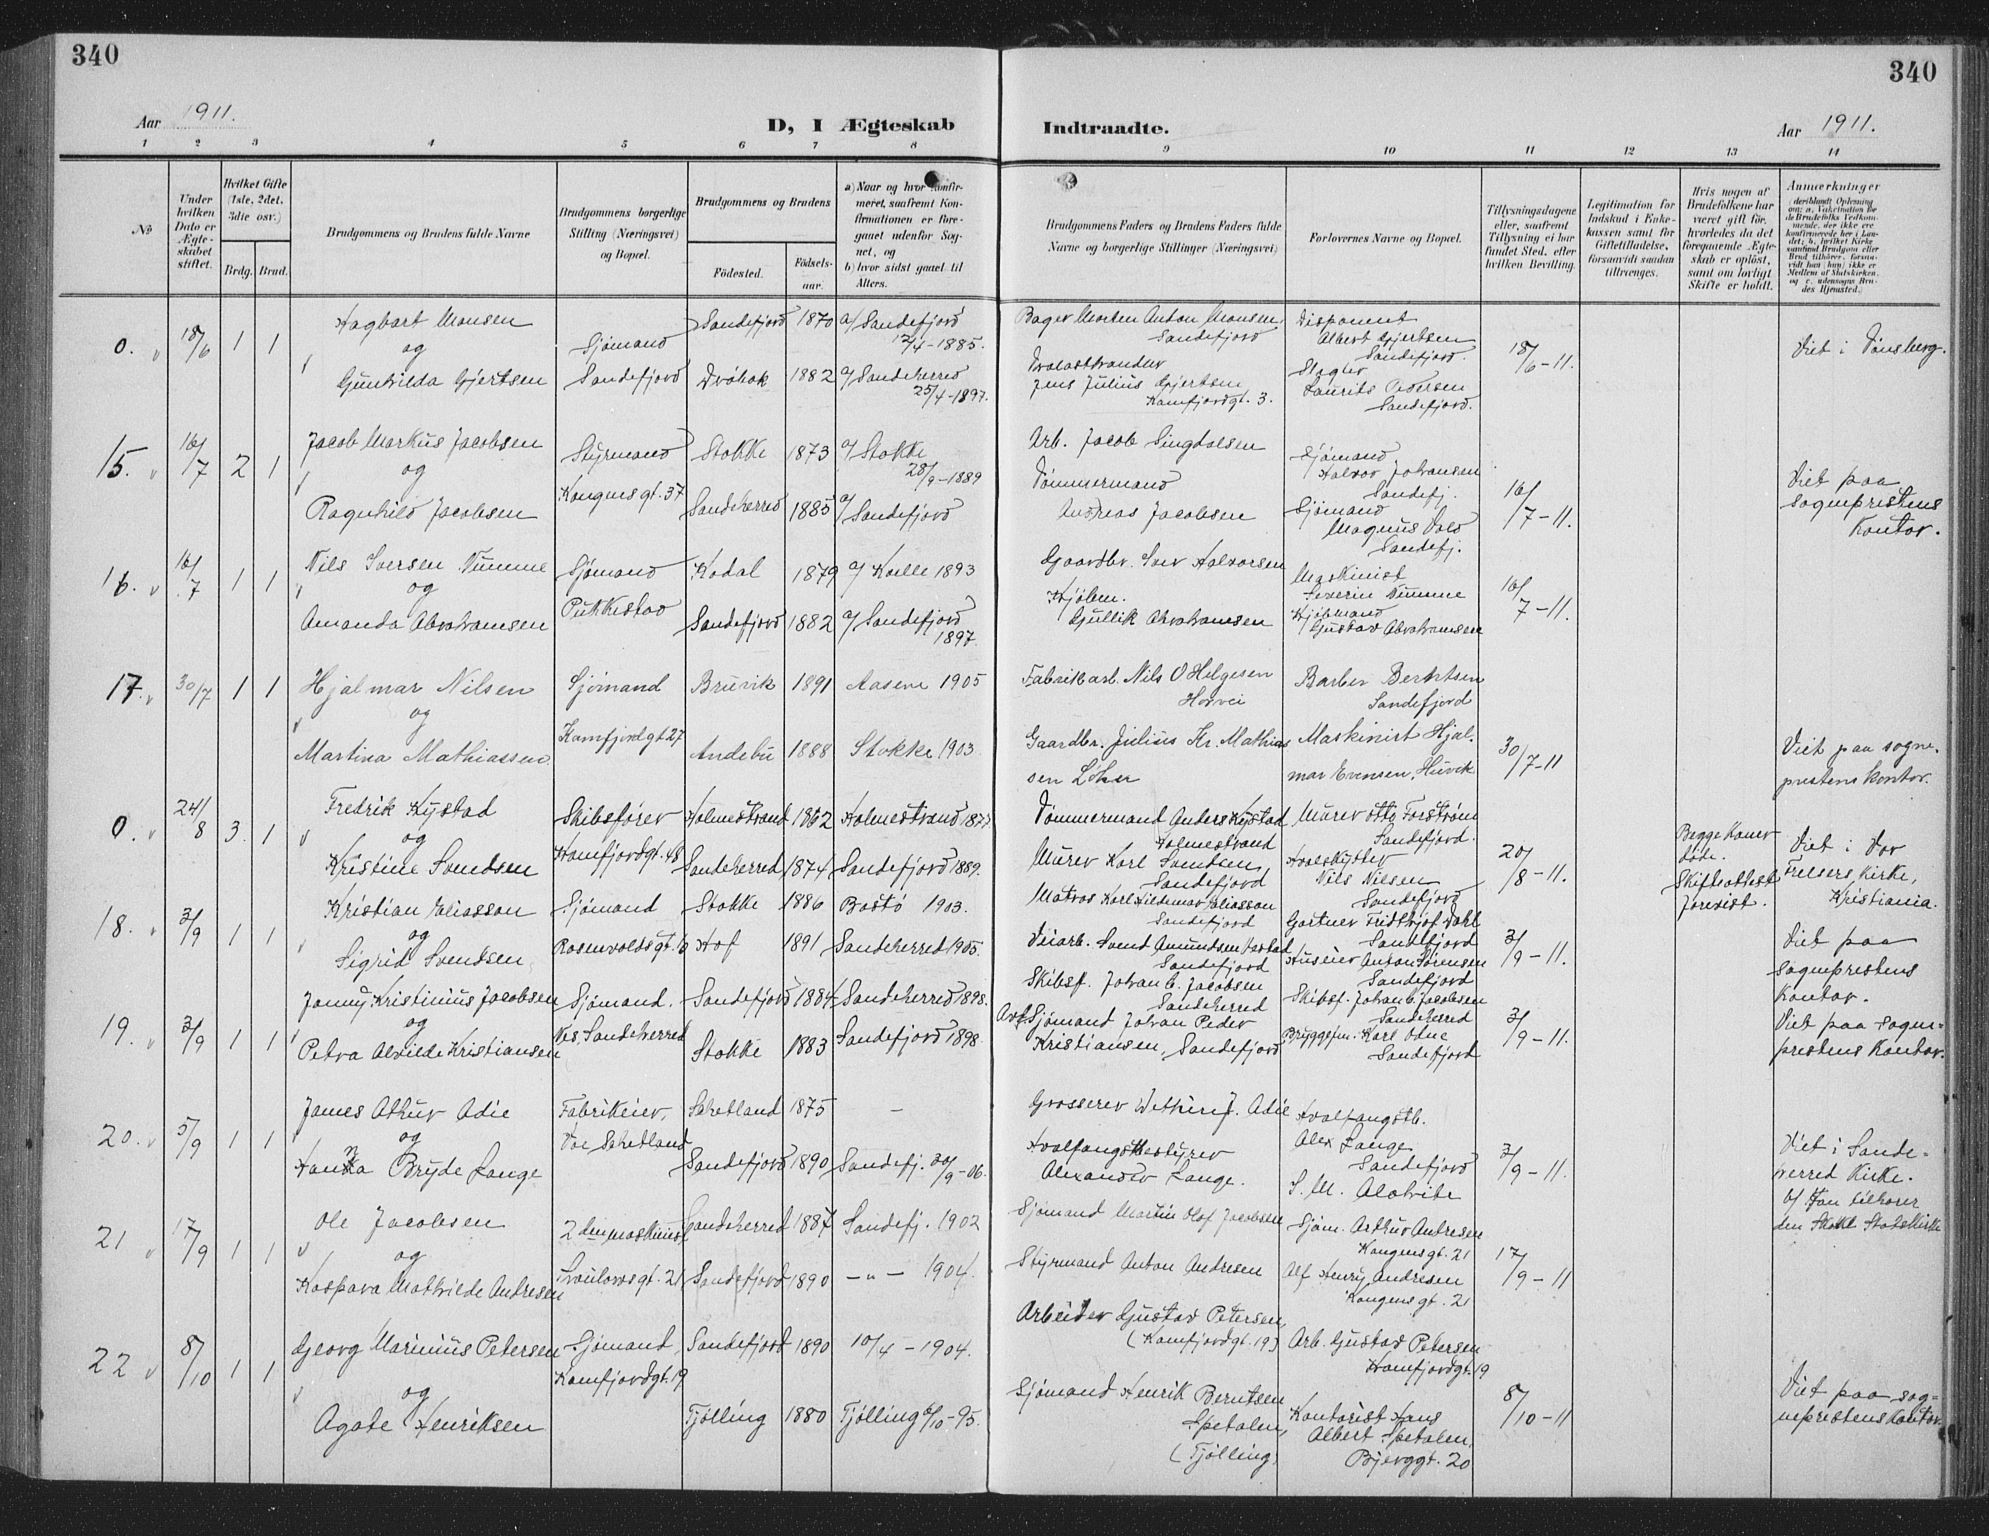 340
340
Aar 1911.
D, I Ægteskab Indtraadte.
Aar 1911.
1 2 3 4 5 6 7 8 9 10 11 12 13 14
No
Under hvilken Dato er Ægteskabet stiftet.
Hvilket Gifte (1ste, 2det, 3die osv.)
Brdg. Brud.
Brudgommens og Brudens fulde Navne
Brudgommens borgerlige Stilling (Næringsvei) og Bopæl.
Brudgommens og Brudens
Födested.
Födselsaar.
a) Naar og hvor konfirmeret, saafremt Konfirmationen er foregaaet udenfor Sognet, og
b) hvor sidst gaaet til Alters.
Brudgommens Faders og Brudens Faders fulde Navne og borgerlige Stillinger (Næringsvei)
Forlovernes Navne og Bopæl.
Tillysningsdagene eller, saafremt Tillysning ei har fundet Sted, efter hvilken Bevilling.
Legitimation for Indskud i Enkekassen samt for Giftetilladelse, forsaavidt saadan tiltrænges.
Hvis nogen af Brudefolkene har været gift för, hvorledes da det foregaaende Ægteskab er oplöst, samt om lovligt Skifte er holdt.
Anmærkninger
(deriblandt Oplysning om: a. Vakcination for de Brudefolks Vedkommende, der ikke ere konfirmerede her i Landet; b. hvilket Kirkesamfund Brudgom eller Brud tilhörer, forsaavidt han (hun) ikke er Medlem af Statskirken, og c. udensogns Brudes Hjemsted.)
0. 18/6 1 1
Hagbart Monsen
og
Gunhilda Gjertsen
Sjömand
Sandefjord
Sandefjord 1870 a/ Sandefjord
12/4-1885.
Dröbak 1882 a/ Sandeherred
25/4-1897.
Bager Morten Anton Monsen
Sandefjord
Jens Julius Gjertsen
Kamfjordgt. 3.
Disponent
Albert Gjertsen
Sandefjord.
Laurits Pedersen
Sandefjord.
18/6-11.
Viet i Tönsberg.
15. 16/7 2 1
Jacob Markus Jacobsen
og
Ragnhild Jacobsen
Styrmand
Kongensgt. 37
Stokke 1873 a/ Stokke
28/9-1889
Sandeherred 1885 a/ Sandefjord
Arb. Jacob Lingdalsen
Tömmermand
Andreas Jacobsen
Sjömand
Halvor Johansen
Sandefj.
Sjömand
Magnus Vold
Sandefj.
16/7-11.
Viet paa
sogneprestens
Kontor.
16. 16/7 1 1
Nils Iversen Numme
og
Amanda Abrahamsen
Sjömand
Pukkestad
Kodal 1879 a/ Kville 1893
Sandefjord 1882 a/ Sandefjord
1897.
Gaardbr. Iver Halvorsen
Kjöbm.
Gullik Abrahamsen
Maskinist
Severin Numme
Kjöbmand
Gustav Abrahamsen
16/7-11.
17. 30/7 1 1
Hjalmar Nilsen
og
Martina Mathiassen
Sjömand
Kamfjordgt 27
Bruvik 1891 Aasene 1905
Andebu 1888 Stokke 1903.
Fabrikarb. Nils O Helgesen
Horvei
Gaardbr. Julius Kr. Mathias
sen Löhre
Barber Berntsen
Sandefjord
Maskinist Hjal-
mar Evensen, Huvik
30/7-11
Viet paa sogne-
prestens kontor.
0. 24/8 3. 1
Fredrik Kystad
og
Kristine Svendsen
Skibsförer
Kamfjordgt. 48
Holmestrand 1862 Holmestrand 1877
Sandeherred 1874 Sandefjord 1889.
Tömmermand Anders Kystad
Holmestrand
Murer Karl Svendsen
Sandefjord
Murer Otto Forström
Sandefjord.
Hvalskytter
Nils Nilsen
Sandefjord
20/8-11.
Begge Koner
döde.
Skifteattest
forevist.
Viet i Vor
Frelsers Kirke,
Kristiania.
18. 3/9 1 1
Kristian Eliasson
og
Sigrid Svendsen
Sjömand
Rosenvoldsgt. 6
Stokke 1886 Bastö 1903.
Hof 1891 Sandeherred 1905.
Matros Karl Hildemar Eliasson
Sandefjord
Veiarb. Svend Amundsen
Sandefjord
Gartner Fridthjof Dahl
Sandefjord
Huseier Anton Sörensen
Sandefjord
3/9-11.
Viet paa
sogneprestens
Kontor.
19. 3/9 1 1
Janny Kristinius Jacobsen
og
Petra Alvilde Kristiansen
Sjömand.
Nes, Sandeherred
Sandefjord 1884 Sandeherred 1898.
Stokke 1883 Sandefjord 1898.
Skibsf. Johan C. Jacobsen
Sandeherred
Sjömand Johan Peder
Kristiansen, Sandefjord
Skibsf. Johan C Jacobsen
Sandeherred
Bryggefm. Karl Odne
Sandefjord
3/9-11.
Viet paa sogne-
prestens Kontor.
20. 5/9 1 1
James Athur Adie
og
Hanna Bryde Lange
Fabrikeier,
Voe Schetland
Schetland 1875 -
Sandefjord 1890 Sandefj. 30/9-06.
Grosserer J. Adie
Hvalfangstbestyrer
Alexander Lange.
Hvalfangstb.
Alex Lange
Sandefjord
3/9-11.
Viet i Sande-
herred Kirke.
den Statskirke
21 17/9 1 1
Ole Jacobsen
og
Kaspara Mathilde Andresen
2den maskinist
gt. 21
Sandeherred 1887 Sandefj. 1902
Sandefjord 1890 -"- 1904.
Sjömand Martin Olof Jacobsen
Styrmand Anton Andresen
Sjöm. Arthur Andresen
Kongensgt. 21
Alf Henry Andresen
Kongensgt. 21
17/9-11
22 8/10 1 1
Georg Marinius Petersen
og
Agate Henriksen
Sjömand,
Kamfjordgt. 19
Sandefjord 1890 10/4-1904.
Tjölling 1880 Tjölling 6/10-95.
Arbeider Gustav Petersen,
(Kamfjordgt. 19)
Sjömand Henrik Berntsen
Spetalen,
(Tjölling)
Arb. Gustav Petersen
Kamfjordgt. 19
Kontorist Hans
Albert Spetalen,
Bjerggt. 20
8/10-11
Viet paa sog-
neprestens Kontor.